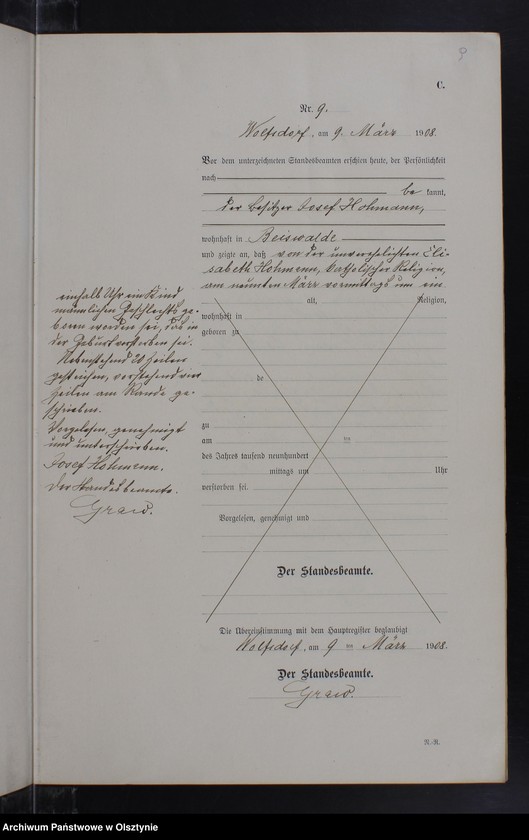 9
C.
Nr. 9.
Wolfsdorf, am 9. März 1908.
Vor dem unterzeichneten Standesbeamten erschien heute, der Persönlichkeit
nach
be kannt,
der Besitzer Josef Hohmann,
wohnhaft in Beiswalde
und zeigte an, daß von der unverehelichten Eli-
sabeth Hohmann, katholischer Religion,
am neunten März vormittags um ein
alt, Religion,
einhalb Uhr ein Kind
männlichen Geschlechts ge-
boren worden sei, das in
der Geburt verstorben sei.
Nebenstehend 20 Zeilen
gestrichen, vorstehend vier
Zeilen am Rande ge-
schrieben.
Vorgelesen, genehmigt
und unterschrieben.
Josef Hohmann.
Der Standesbeamte.
Graw.
wohnhaft in
geboren zu
de
zu
am ten
des Jahres tausend neunhundert
mittags um Uhr
verstorben sei.
Vorgelesen, genehmigt und
Der Standesbeamte.
Die Übereinstimmung mit dem Hauptregister beglaubigt
Wolfsdorf, am 9 ten März 1908.
Der Standesbeamte.
Graw.
N.-R.
Archiwum Państwowe w Olsztynie